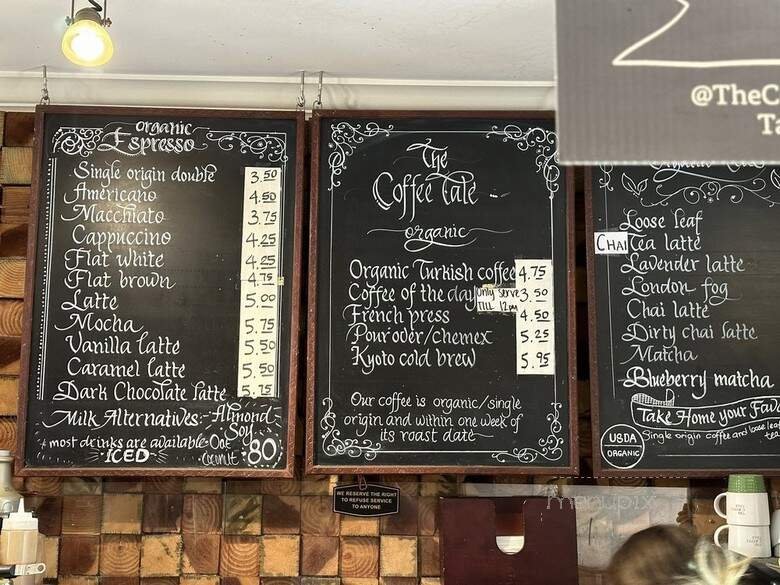 organic
Espresso
Single origin double 3.50
Americano 4.50
Macchiato 3.75
Cappuccino 4.25
Flat white 4.25
Flat brown 4.75
Latte 5.00
Mocha 5.75
Vanilla latte 5.50
Caramel latte 5.50
Dark Chocolate latte 5.75
Milk Alternatives - Almond
Soy
most drinks are available Oat 80
ICED Coconut
The
Coffee Tale
organic
Organic Turkish coffee 4.75
Coffee of the day only serve TILL 12pm 3.50
French press 4.50
Pour over/chemex 5.25
Kyoto cold brew 5.95
Our coffee is organic/single
origin and within one week of
its roast date
WE RESERVE THE RIGHT
TO REFUSE SERVICE
TO ANYONE
@TheC
Ta
Loose leaf
CHAI Tea latte
Lavender latte
London fog
Chai latte
Dirty chai latte
Matcha
Blueberry matcha
Take Home your Fav
Single origin coffee and loose leaf
USDA
ORGANIC
menupix